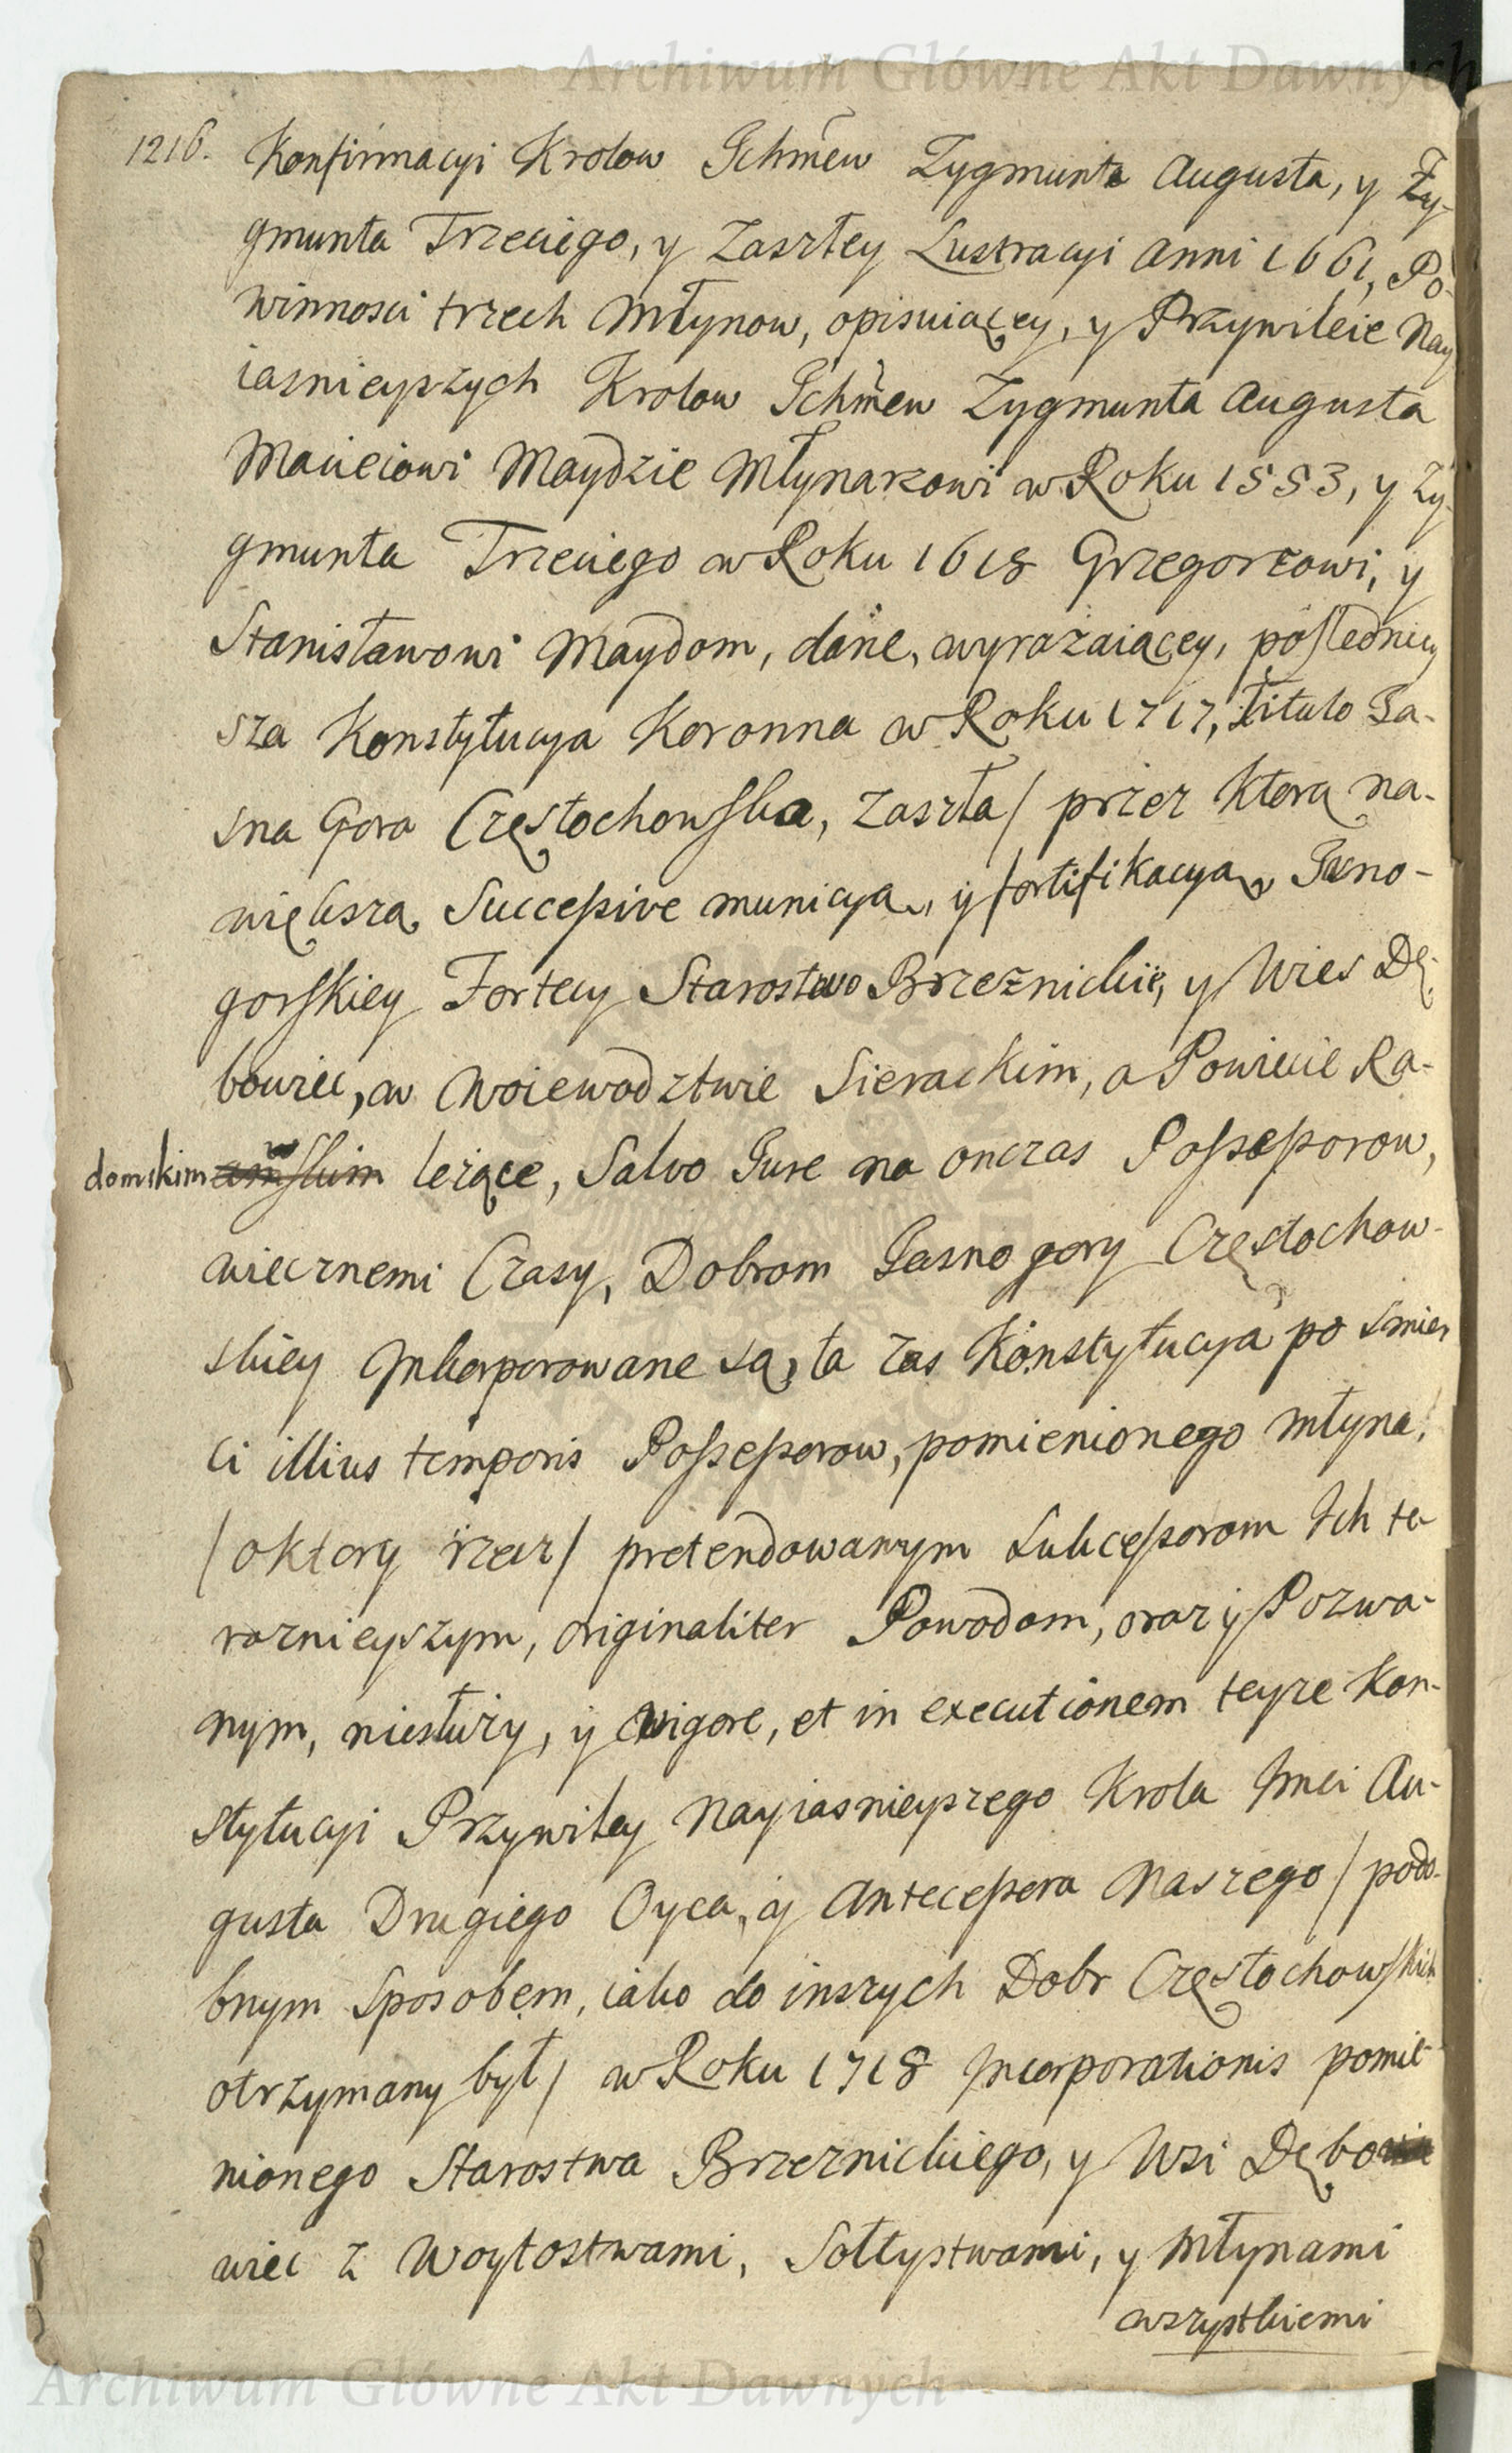 Archiwum Główne Akt Dawnych
1216. Konfirmacyi Krolow Ichmćiow Zygmunta Augusta, y Zy-
gmunta Trzeciego, y Zaszłey Lustracyi Anni 1661, Po-
winnosci trzech Młynow, opisuiącey, y Przywileie Nay
iasnieyszych Krolow Ichmćiow Zygmunta Augusta
Macieiowi Maydzie Młynarzowi w Roku 1553, y Zy-
gmunta Trzeciego w Roku 1618 Grzegorzowi, y
Stanisławowi Maydom, dane, wyrażaiącey, posledniey
sza Konstytucya Koronna w Roku 1717, titulo Ja-
sna Gora Częstochowska, zaszła / przez ktorą na-
większą Successive municyą, y fortifikacyą Jasno-
gorskiey Fortecy Starostwo Brzeznickie, y Wies Dę-
bowiec, w Woiewodztwie Sierackim, a Powiecie Ra-
domskim leżące, Salvo Jure na onczas Possessorow,
wiecznemi Czasy, Dobrom Jasnogory Częstochow-
skiey Inkorporowane są, ta zas Konstytucya po smier
ci illius temporis Possessorow, pomienionego młyna,
/ oktory rzecz / pretendowanym Sukcessorom Ich te-
raznieyszym, originaliter Powodom, oraz y Pozwa-
nym, niesłuży, y vigore, et in executionem teyze Kon-
stytucyi Przywiley Nayiasnieyszego Krola Jmci Au-
gusta Drugiego Oyca, y Antecessora Naszego / podo-
bnym Sposobem, iako do inszych Dobr Częstochowskich
otrzymany był / w Roku 1718 Incorporationis pomie-
nionego Starostwa Brzeznickiego, y Wsi Dębo
wiec z Woytostwami, Sołtystwami, y Młynami
wszystkiemi
Archiwum Główne Akt Dawnych